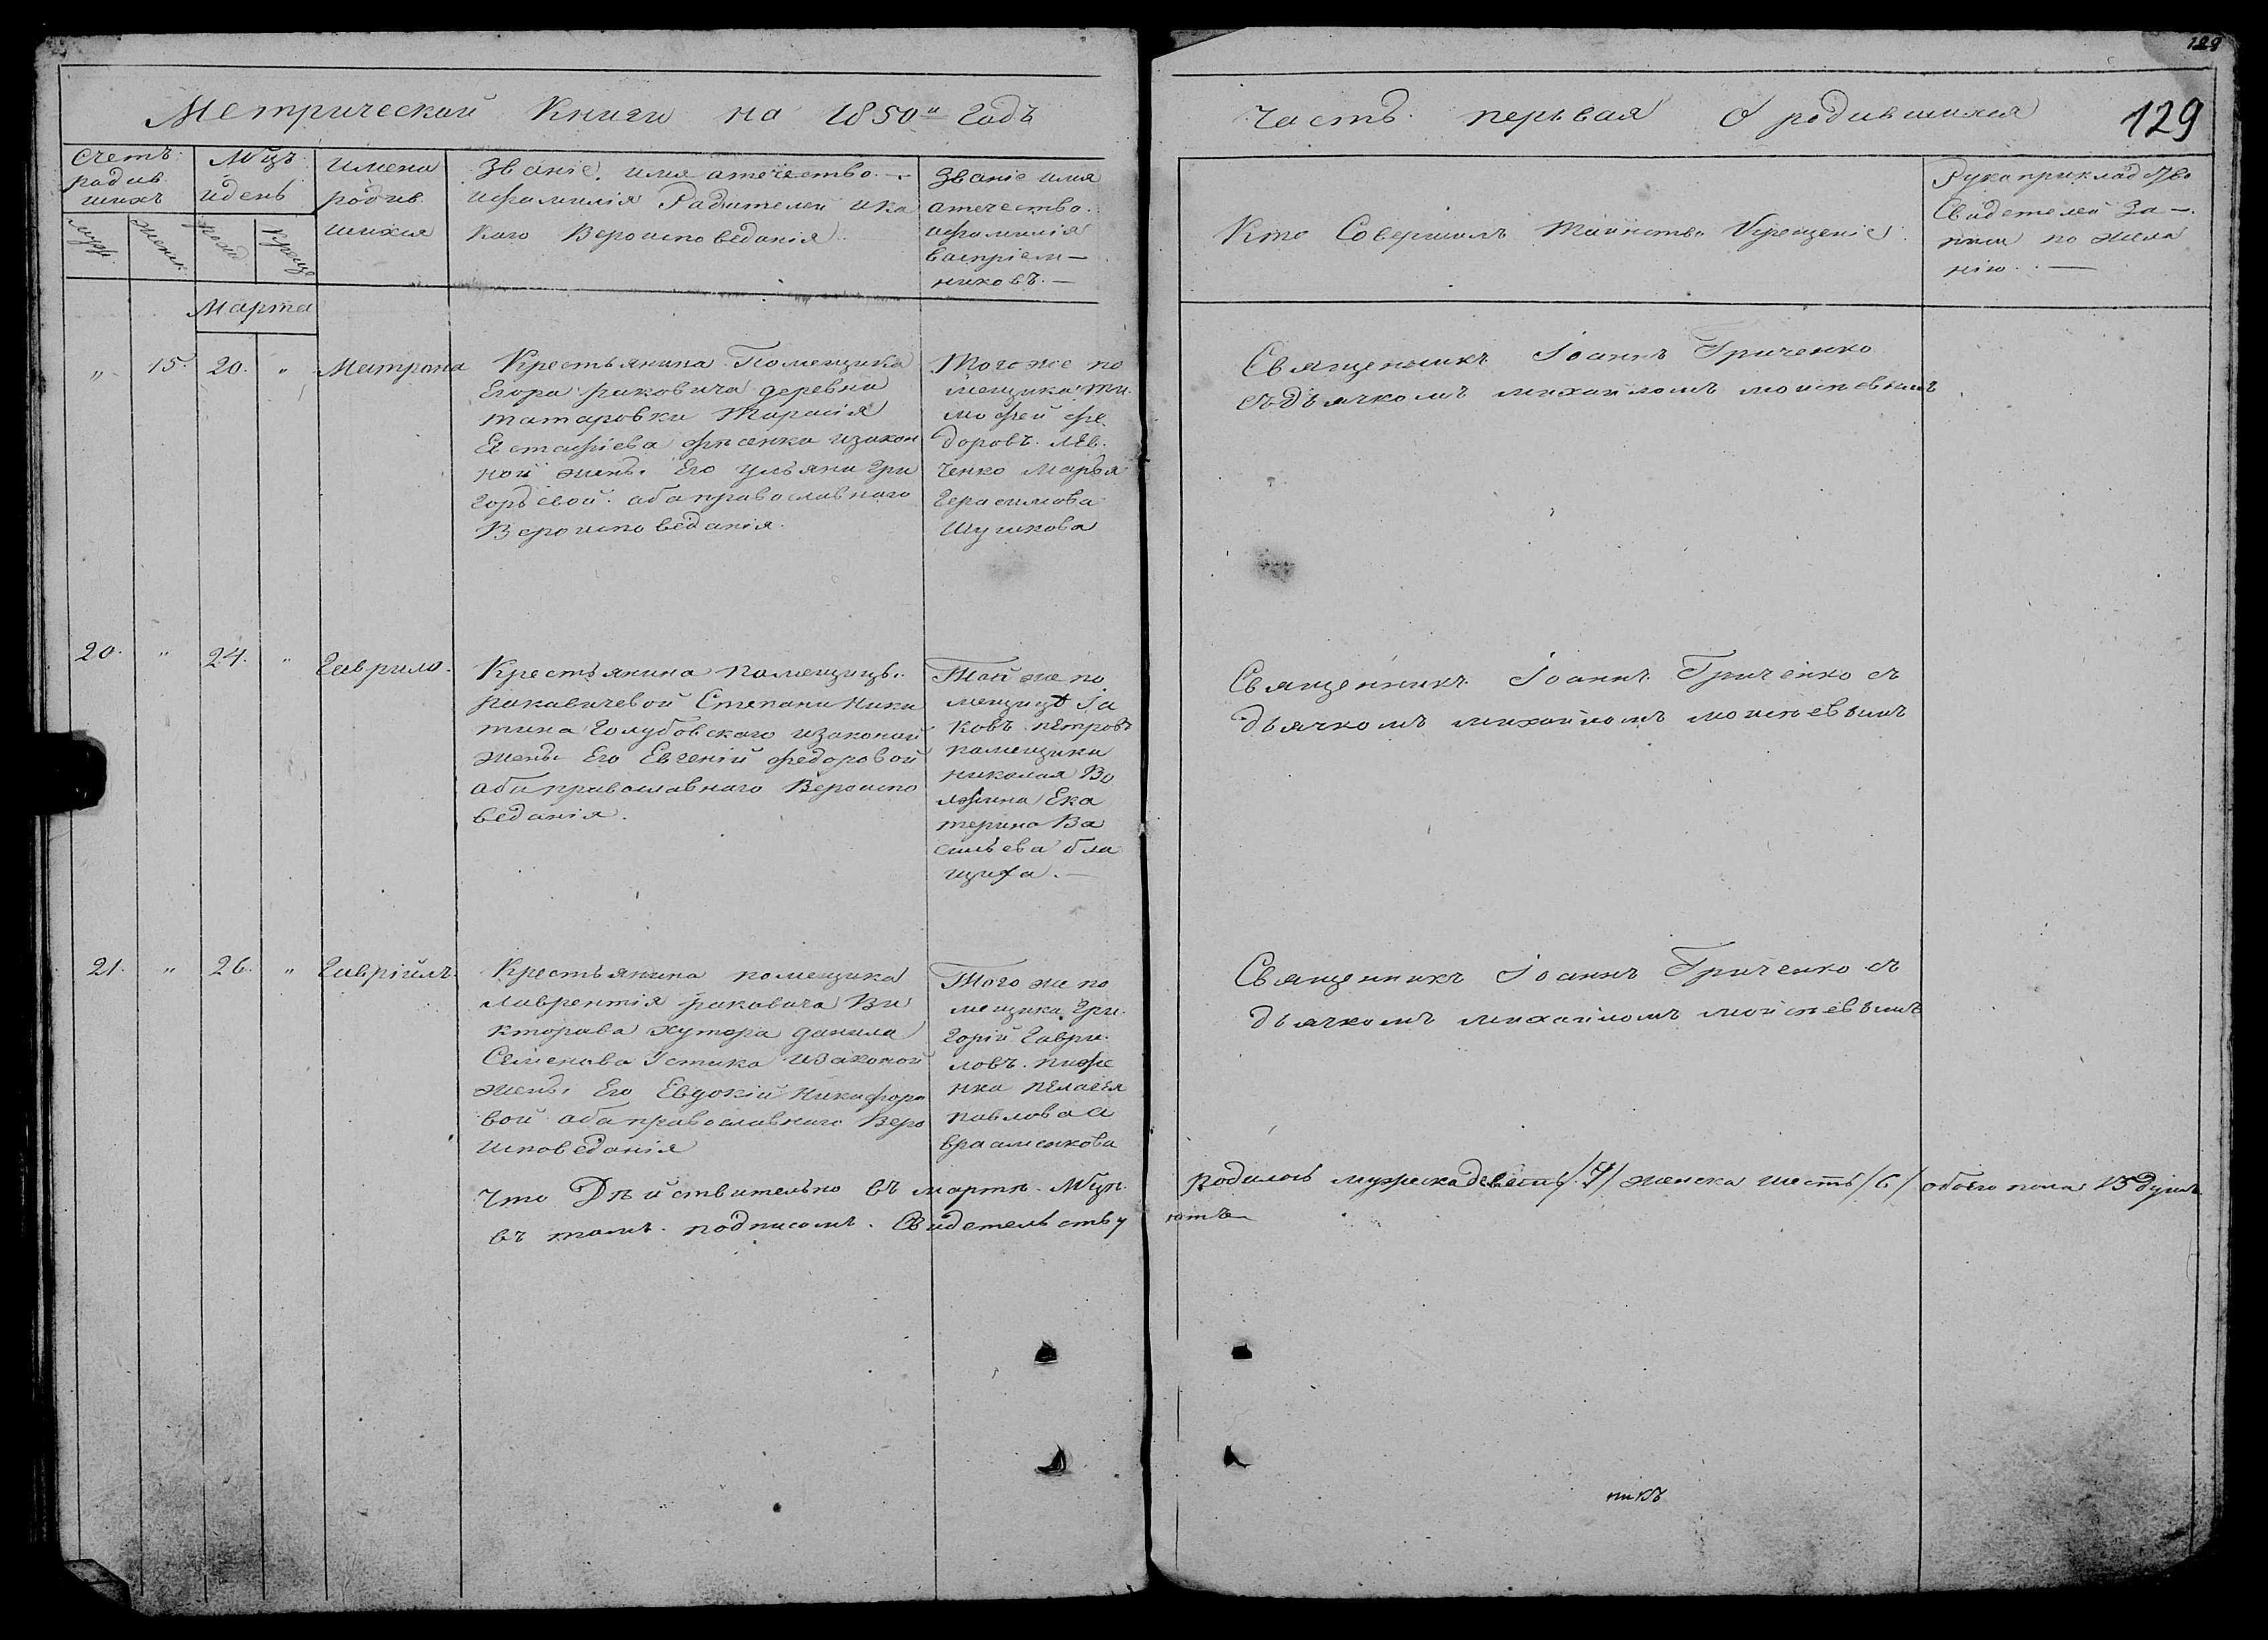 129
Метрической Книги на 1850й Годъ
Часть первая О родившихся
129
Счетъ
родив
шихъ
муж.
женск.
Мѣцъ
и день
рожд
креще
имена
родив
шихся
Званіе, имя отечество
и фамилія Родителей и ка
кого Вероисповеданія
Званіе имя
отечество
и фамилія
васпріем—
никовъ.—
Кто Совершалъ Таинство Крещеніе
Рукоприкладство
Свидетелей За—
писи по жела
нію.—
Марта
" 15. 20. " Матрона
Крестьянина Помещика
Егора раковича деревни
татаровки Тарасія
Естафіева и закон
ной жены Его ульяни Гри
горьевой оба православнаго
Вероисповеданія.
Того же по
мещика ти
мофей фе
доровъ. лев
ченко Марья
Герасимова
Шушкова
Священникъ Іоаннъ Гриченко
съ дьячкомъ михаиломъ моисеевымъ
20. " 24. " Гаврило.
Крестьянина помещицы
раковичевой Степана Ники
тина Голубовского и законой
жены Его Евгеній федоровой
оба православнаго Вероиспо
веданія.
Той же по
мещицы Іа
ковъ петровъ
помещика
николая Во
Ека
терина Ва
сильева бла
щиха.—
Священникъ Іоаннъ Гриченко съ
дьячкомъ михайломъ моисеевымъ
21. " 26. " Гавріилъ.
Крестьянина помещика
лаврентія раковича Ви
кторова хутора данила
Семенова Устика и законой
жены Его Евдокій никифоро
вой оба православнаго Веро
исповеданія
Того же по
мещика Гри
горій Гаври
ловъ.
нка пелагея
павлова а
врааменкова
Священникъ Іоаннъ Гриченко съ
дьячкомъ михайломъ моисеевымъ
Что Дѣйствительно въ мартѣ Мѣцѣ родилось мужеска девять /9/ женска шесть /6/ обоего пола 15 душъ
въ томъ подписомъ. Свидетельству ютъ
никъ